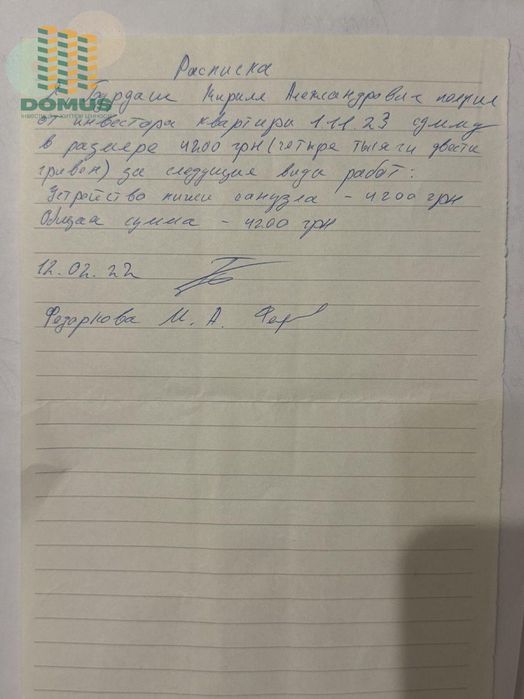 DOMUS
Расписка
Я Бурдаш Кирилл Александрович получил
от инвестора квартиры 1.11.23 сумму
в размере 4200 грн (четыре тысячи двести
гривен) за следущие виды работ:
Устройство ниши санузла - 4200 грн
Общая сумма - 4200 грн
12.02.22
М. А.